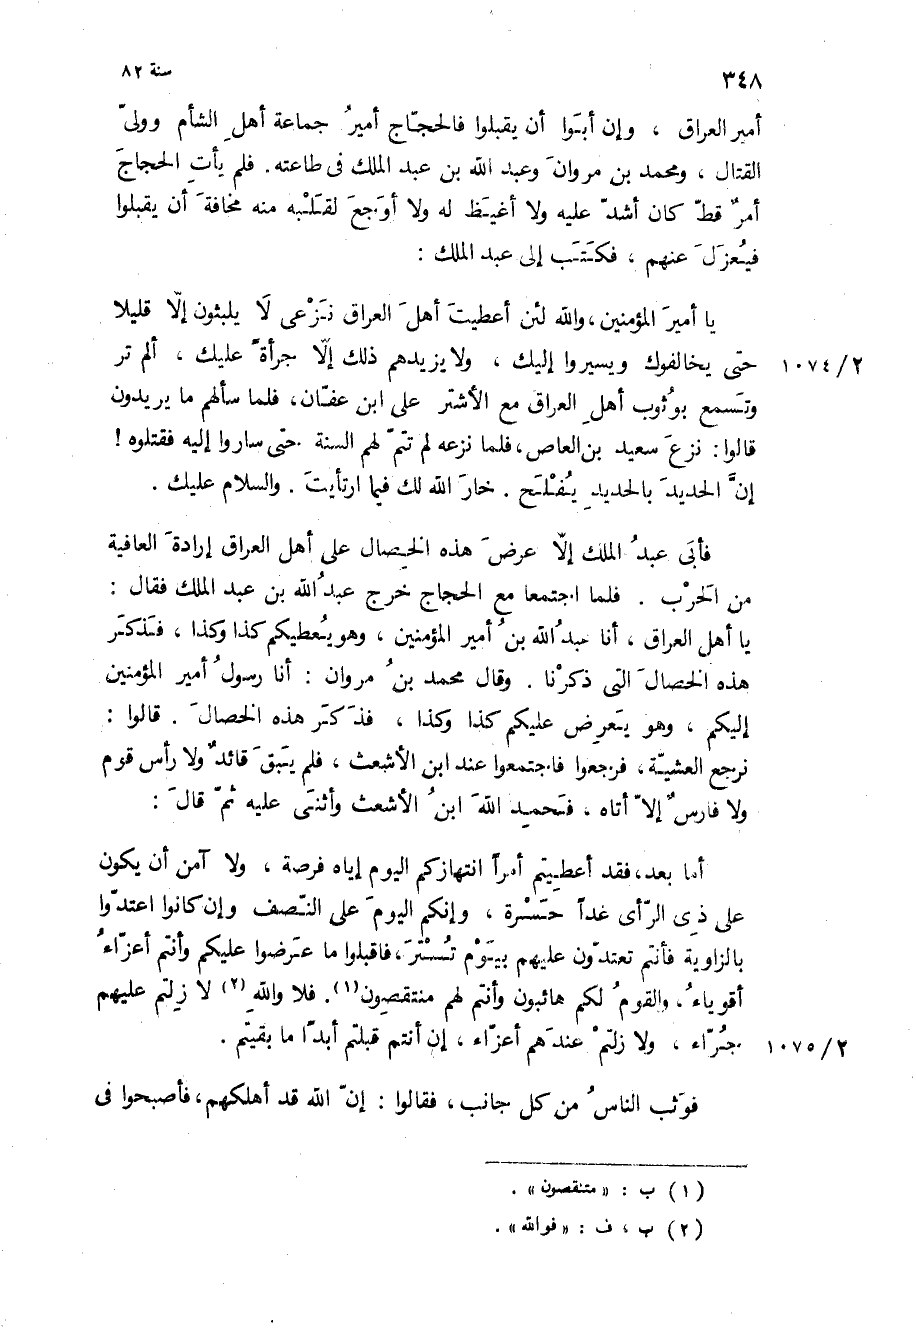 ٣٤٨
سنة ٨٢
أمير العراق ، وإن أبَوا أن يقبلوا فالحجّاج أميرُ جماعة أهلِ الشأم وولىّ
القتال ، ومحمد بن مروانَ وعبد الله بن عبد الملك فى طاعته. فلم يأتِ الحجاجَ
أمرٌ قطّ كان أشدّ عليه ولا أغيَظ له ولا أوجعَ لقَلْبه منه مخافةَ أن يقبلوا
فيُعزَلَ عنهم ، فكتَب إلى عبد الملك :
يا أميرَ المؤمنين، والله لئن أعطيتَ أهلَ العراق نَزْعى لَا يلبثون إلّا قليلا
حتّى يخالفوك ويسيروا إليك ، ولا يزيدهم ذلك إلّا جرأةً عليك ، ألم تر
٢/ ١٠٧٤
وتَسمع بوُثوب أهلِ العراق مع الأشتر على ابن عفّان، فلما سألهم ما يريدون
قالوا: نزعَ سعيد بن العاص، فلما نزعه لم تتمّ لهم السنة حتّى ساروا إليه فقتلوه !
إنَّ الحديدَ بالحديدِ يُفْلَح . خارَ الله لك فيما ارتأيتَ . والسلام عليك .
فأبَى عبدُ الملك إلّا عرضَ هذه الخِصال على أهل العراق إرادةَ العافية
من الحَرْب . فلما اجتمعا مع الحجاج خرج عبدُ الله بن عبد الملك فقال :
يا أهل العراق ، أنا عبدُ الله بنُ أمير المؤمنين ، وهو يُعطيكم كذا وكذا ، فذكَر
هذه الخصالَ التى ذكرْنا . وقال محمد بنُ مروان : أنا رسولُ أمير المؤمنين
إليكم ، وهو يَعرِض عليكم كذا وكذا ، فذَكَر هذه الخصالَ . قالوا :
نرجع العشيّة، فرجعوا فاجتمعوا عند ابن الأشعث ، فلم يَبقَ قائدٌ ولا رأس قوم
ولا فارسٌ إلاّ أتاه ، فحَمِد اللهَ ابنُ الأشعث وأثنَى عليه ثمّ قالَ :
أما بعد، فقد أعطِيتم أمراً انتهازكم اليوم إياه فرصة ، ولا آمن أن يكون
على ذِى الرّأى غداً حَسْرة ، وإنكم اليومَ على النَّصف وإن كانوا اعتدّوا
بالزاوية فأنتم تعتدّون عليهم بيَوْم تُسْتَرَ، فاقبلوا ما عَرَضوا عليكم وأنتم أعزّاءُ
أقوياءُ، والقومُ لكم هائبون وأنتم لهم منتقِصون(١). فلا واللهِ(٢) لا زِلتم عليهم
جُرّاء ، ولا زلتمْ عندَهم أعزّاء ، إن أنتم قبلتم أبدًا ما بقيتم .
٢/ ١٠٧٥
فوَثب الناسُ من كل جانب، فقالوا : إنّ الله قد أهلكهم، فأصبحوا فى
(١) ب : « متنقصون » .
(٢) ب ، ف : « فوالله » .